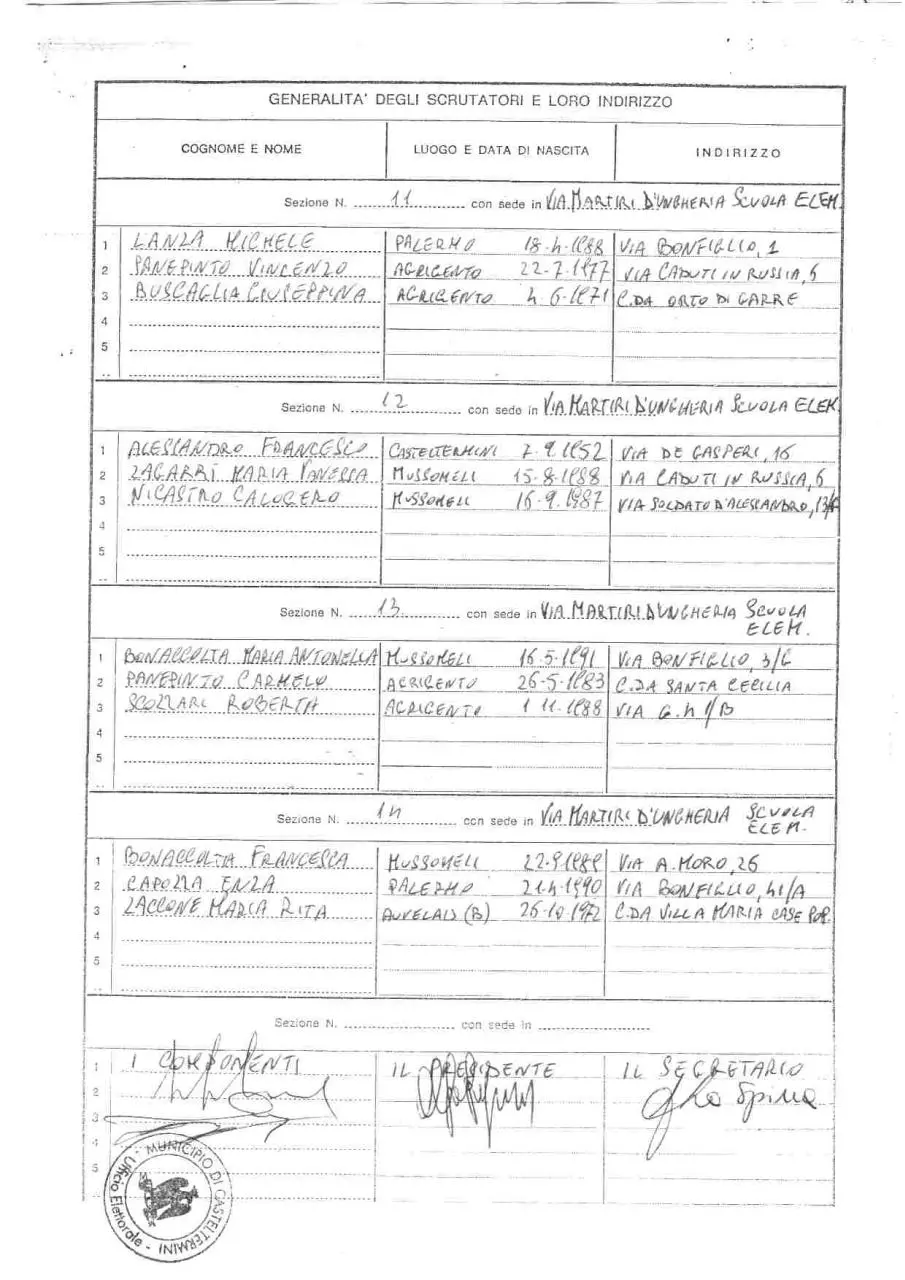 GENERALITA' DEGLI SCRUTATORI E LORO INDIRIZZO
COGNOME E NOME LUOGO E DATA DI NASCITA INDIRIZZO
Sezione N. 11 con sede in VIA MARTIRI D'UNGHERIA SCUOLA ELEM.
1 LANZA MICHELE PALERMO 18-4-1988 VIA BONFIGLIO, 1
2 PANEPINTO VINCENZO AGRIGENTO 22-7-1977 VIA CADUTI IN RUSSIA, 6
3 BUSCAGLIA GIUSEPPINA AGRIGENTO 4-6-1971 C.DA ORTO DI GARRE
4
5
Sezione N. 12 con sede in VIA MARTIRI D'UNGHERIA SCUOLA ELEM.
1 ALESSANDRO FRANCESCO CASTELTERMINI 7-9-1952 VIA DE GASPERI, 16
2 ZAGARRÌ MARIA VANESSA MUSSOMELI 15-8-1988 VIA CADUTI IN RUSSIA, 6
3 NICASTRO CALOGERO MUSSOMELI 16-9-1987 VIA SOLDATO D'ALESSANDRO,
4
5
Sezione N. 13 con sede in VIA MARTIRI D'UNGHERIA SCUOLA
ELEM.
1 BONACCOLTA MARIA ANTONELLA MUSSOMELI 16-5-1991 VIA BONFIGLIO, 3/C
2 PANEPINTO CARMELO AGRIGENTO 26-5-1983 C.DA SANTA CECILIA
3 SCOZZARI ROBERTA AGRIGENTO 1 11-1988 VIA G.H 1/B
4
5
Sezione N. 14 con sede in VIA MARTIRI D'UNGHERIA SCUOLA
ELEM.
1 BONACCOLTA FRANCESCA MUSSOMELI 22-9-1989 VIA A. MORO, 26
2 CAPOZZA ENZA PALERMO 21-4-1990 VIA BONFIGLIO, 41/A
3 ZACCONE MARIA RITA AUVELAIS (B) 26-10-1972 C.DA VILLA MARIA CASE POP.
4
5
Sezione N. con sede in
1 I COMPONENTI IL PRESIDENTE IL SEGRETARIO
2 Lo Spina
3
4
5
MUNICIPIO DI CASTELTERMINI
Ufficio Elettorale